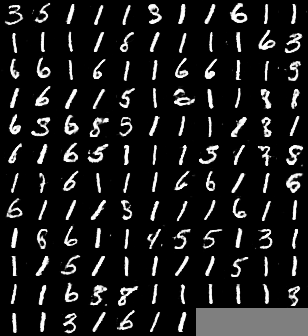 3 5 1 1 1 3 1 1 6 1 1
1 1 1 1 8 1 1 1 1 6 3
6 6 1 6 1 1 6 6 1 1 5
1 6 1 1 5 1 2 1 1 8 1
6 5 6 8 5 1 1 1 1 8 1
6 1 6 5 1 1 1 5 1 7 8
1 7 6 1 1 1 6 6 1 1 6
6 1 1 1 3 1 1 1 6 1 1
1 8 6 1 1 4 5 5 1 3 1
1 1 5 1 1 1 1 1 5 1 1
1 1 6 3 8 1 1 1 1 1 3
1 1 3 1 6 1 1